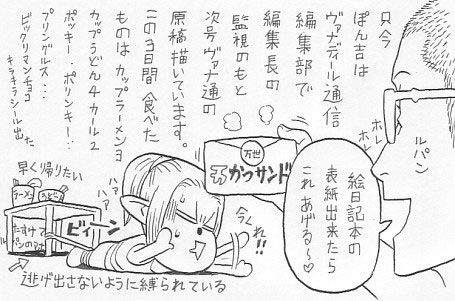 只今
ぽん吉は
ヴァナディール通信
編集部で
編集長の
監視のもと
次号ヴァナ通の
原稿描いています。
この3日間食べた
ものはカップラーメン3
カップうどん4カール2
ポッキー・ポリンキー・・
プリングルス・・・
ビックリマンチョコ
キラキラシール出た
ルパン
ホレ
ホレ
万世
万かつサンド
絵日記本の
表紙出来たら
これあげる〜♡
今くれ!!
ハァ
ハァ
ビィーン
早く帰りたい
ラーメン
うどん
たすけて
逃げ出さないように縛られている